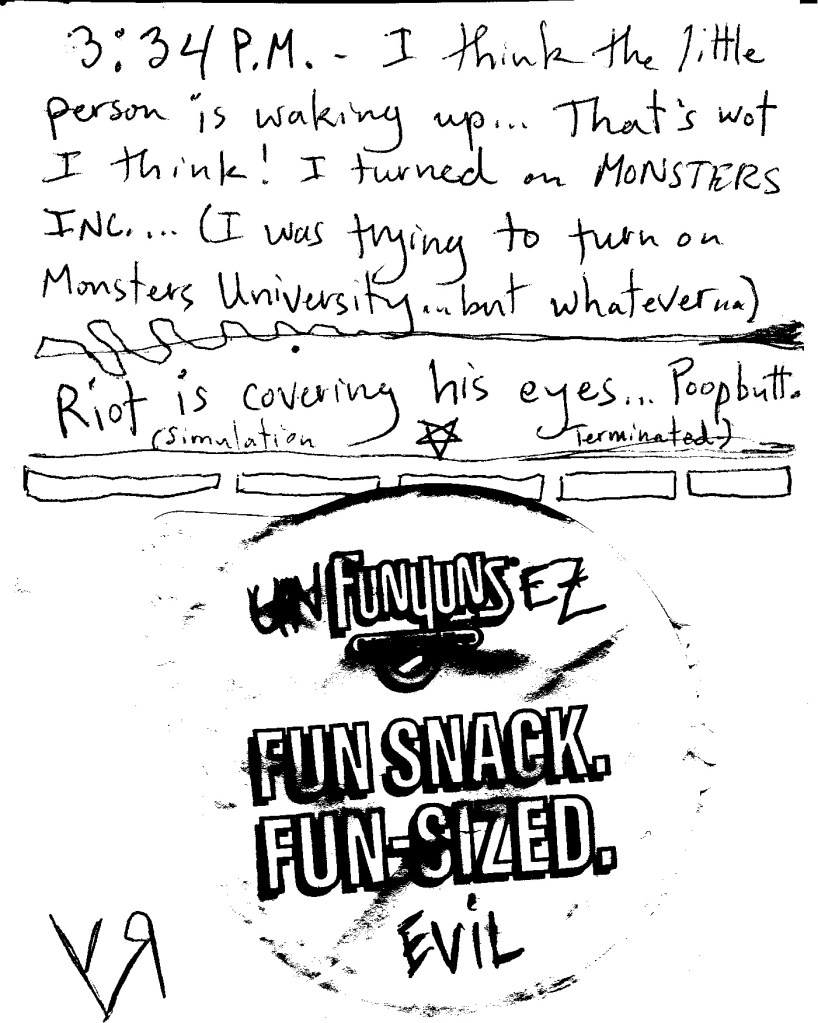 3:34 P.M. - I think the little
person is waking up... That's wot
I think! I turned on MONSTERS
INC.... (I was trying to turn on
Monsters University...but whatever na)
Riot is covering his eyes... Poopbutt.
(Simulation Terminated)
UN FUNYUNS EZ
FUN SNACK.
FUN-SIZED.
EVIL